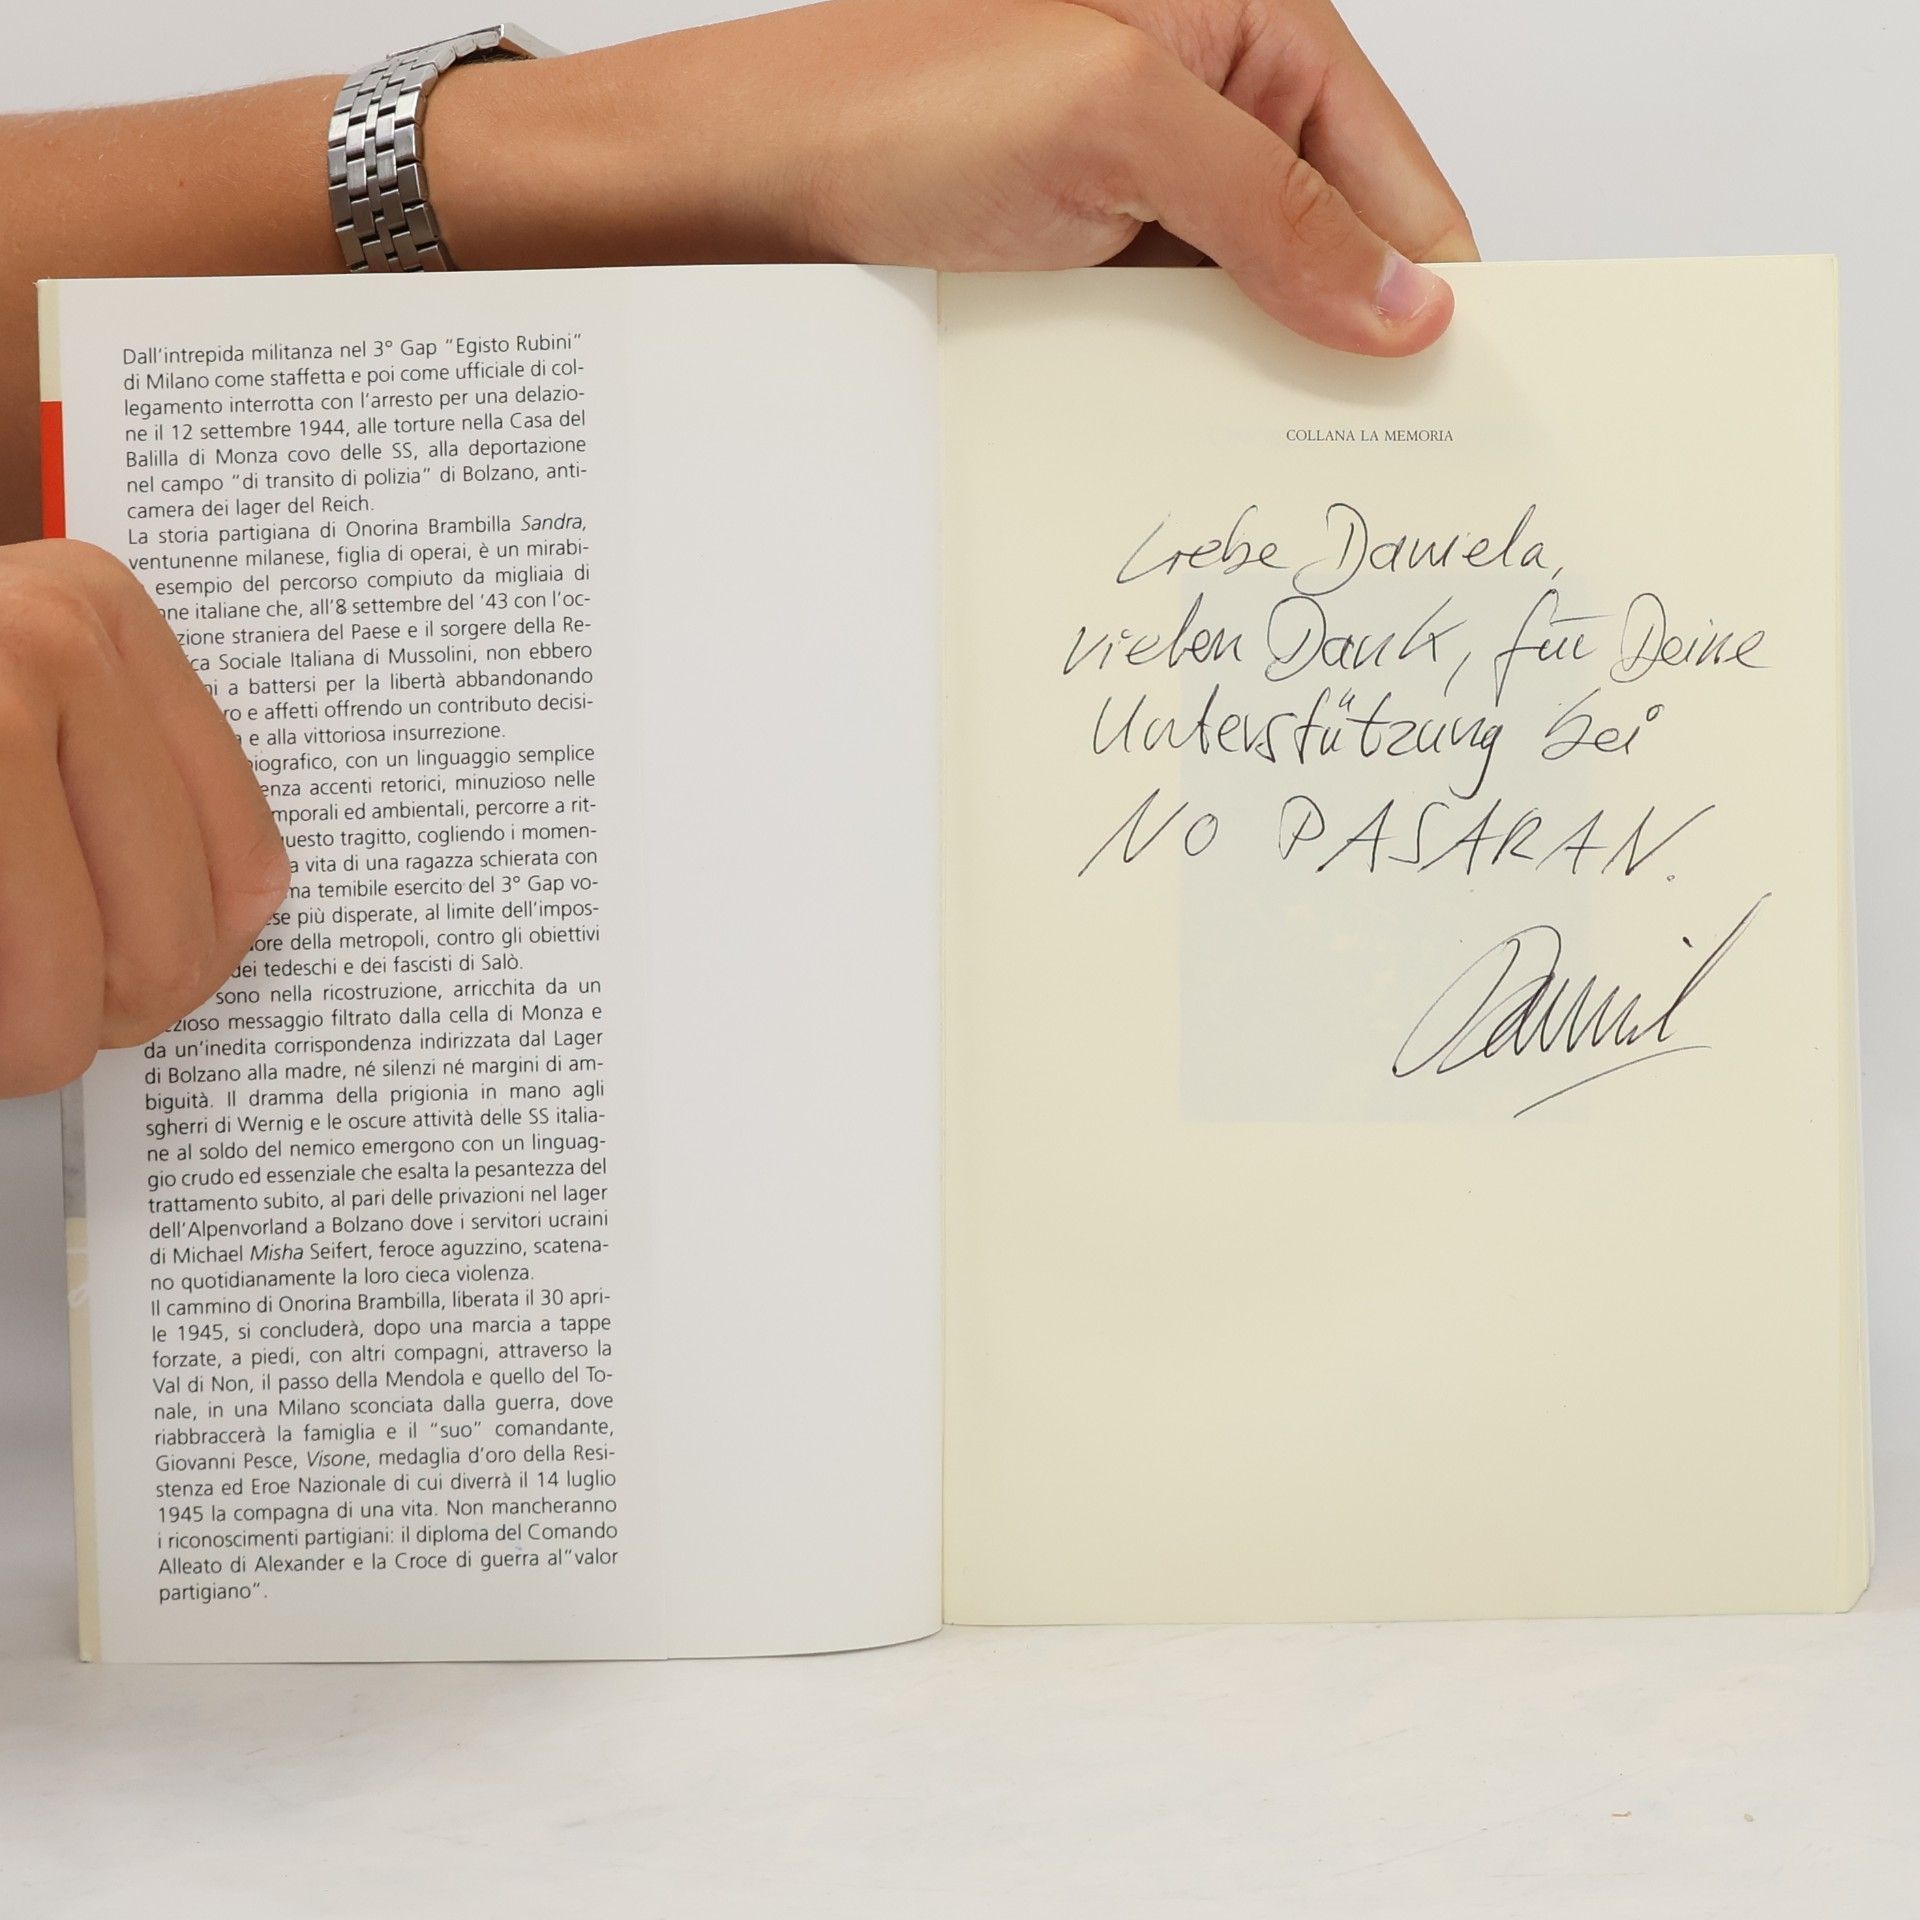 Dall'intrepida militanza nel 3° Gap "Egisto Rubini"
di Milano come staffetta e poi come ufficiale di col-
legamento interrotta con l'arresto per una delazio-
ne il 12 settembre 1944, alle torture nella Casa del
Balilla di Monza covo delle SS, alla deportazione
nel campo "di transito di polizia" di Bolzano, anti-
camera dei lager del Reich.
La storia partigiana di Onorina Brambilla Sandra,
ventunenne milanese, figlia di operai, è un mirabi-
esempio del percorso compiuto da migliaia di
ne italiane che, all'8 settembre del '43 con l'oc-
zione straniera del Paese e il sorgere della Re-
ca Sociale Italiana di Mussolini, non ebbero
ni a battersi per la libertà abbandonando
ro e affetti offrendo un contributo decisi-
a e alla vittoriosa insurrezione.
iografico, con un linguaggio semplice
enza accenti retorici, minuzioso nelle
mporali ed ambientali, percorre a rit-
uesto tragitto, cogliendo i momen-
a vita di una ragazza schierata con
ma temibile esercito del 3° Gap vo-
se più disperate, al limite dell'impos-
ore della metropoli, contro gli obiettivi
dei tedeschi e dei fascisti di Salò.
sono nella ricostruzione, arricchita da un
zioso messaggio filtrato dalla cella di Monza e
da un'inedita corrispondenza indirizzata dal Lager
di Bolzano alla madre, né silenzi né margini di am-
biguità. Il dramma della prigionia in mano agli
sgherri di Wernig e le oscure attività delle SS italia-
ne al soldo del nemico emergono con un linguag-
gio crudo ed essenziale che esalta la pesantezza del
trattamento subito, al pari delle privazioni nel lager
dell'Alpenvorland a Bolzano dove i servitori ucraini
di Michael Misha Seifert, feroce aguzzino, scatena-
no quotidianamente la loro cieca violenza.
Il cammino di Onorina Brambilla, liberata il 30 apri-
le 1945, si concluderà, dopo una marcia a tappe
forzate, a piedi, con altri compagni, attraverso la
Val di Non, il passo della Mendola e quello del To-
nale, in una Milano sconciata dalla guerra, dove
riabbraccerà la famiglia e il "suo" comandante,
Giovanni Pesce, Visone, medaglia d'oro della Resi-
stenza ed Eroe Nazionale di cui diverrà il 14 luglio
1945 la compagna di una vita. Non mancheranno
i riconoscimenti partigiani: il diploma del Comando
Alleato di Alexander e la Croce di guerra al"valor
partigiano".
COLLANA LA MEMORIA
Liebe Daniela,
vielen Dank, für Deine
Unterstützung bei
NO PASARAN.